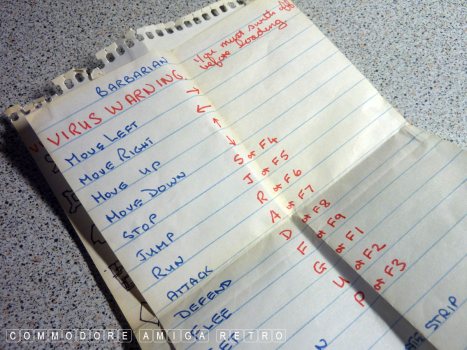 BARBARIAN
VIRUS WARNING You must switch off
before loading
MOVE LEFT →
MOVE RIGHT ←
MOVE UP ↑
MOVE DOWN ↓
STOP S or F4
JUMP J or F5
RUN R or F6
ATTACK A or F7
DEFEND D or F8
FLEE F or F9
G or F1
U or F2
P or F3
STRIP
COMMODORE AMIGA RETRO